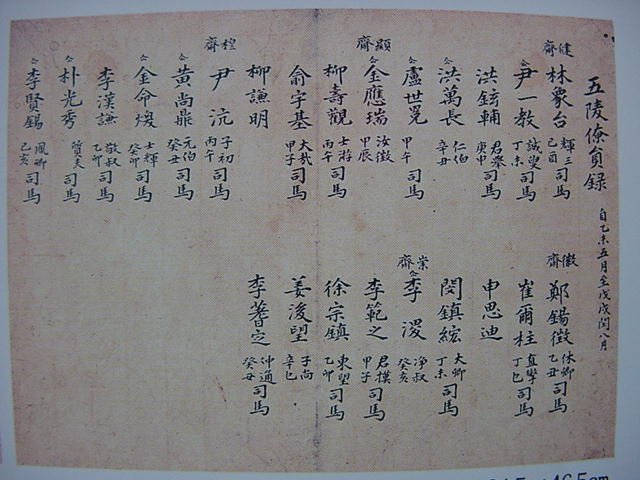 五陵僚員錄
自乙未五月至戊戌閏八月
健齋 林象台 輝三 己酉 司馬
仝 尹一教 誠叟 丁未 司馬
洪鉉輔 君擧 庚申 司馬
仝 洪萬長 仁伯 辛丑 司馬
盧世冕 甲午 司馬
顯齋 仝 金應瑞 汝徵 甲辰 司馬
柳壽觀 丙午 司馬
俞宇基 大哉 甲子 司馬
柳謙明
程齋 尹沆 子初 丙午 司馬
仝 黃尚鼎 元伯 癸丑 司馬
仝 金命煐 士輝 癸卯 司馬
李漢謙 敬叔 乙卯 司馬
仝 朴光秀 質夫 司馬
仝 李賢錫 鳳卿 己亥 司馬
徽齋 鄭錫徵 休卿 乙丑 司馬
崔爾柱 直擎 丁巳 司馬
申思迪
閔鎮綋 大卿 丁未 司馬
崇齋 仝 李溭 淨叔 癸亥 司馬
李範之 君模 甲子 司馬
徐宗鎮 東望 乙卯 司馬
姜浚望 子尚 辛巳 司馬
李著定 仲通 癸丑 司馬